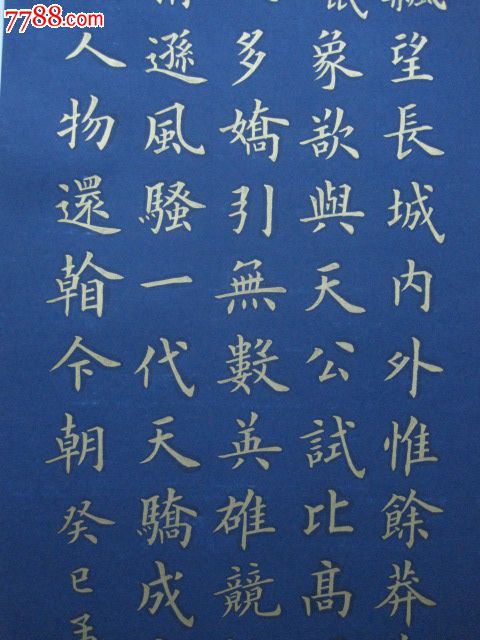 7788.com
飄望長城內外惟餘莽
象欲與天公試比高
多嬌引無數英雄競
遜風騷一代天驕成
人物還看今朝癸巳